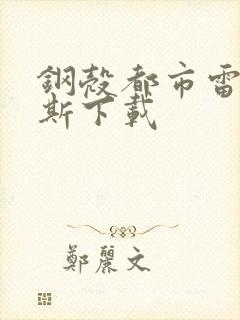 鋼殼都市雷
斯下載
鄭麗文